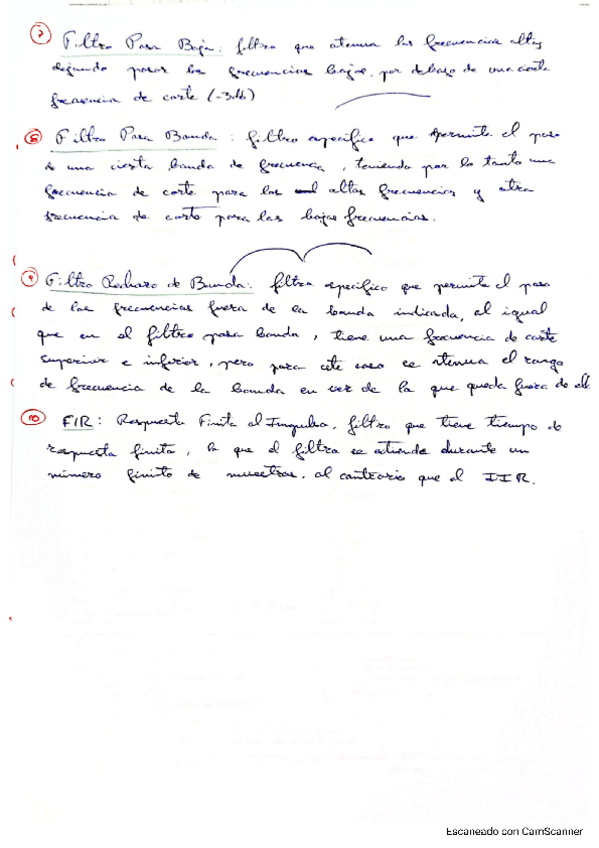 7 Filtro Pasa Baja: filtro que atenua las frecuencias altas
dejando pasar las frecuencias bajas, por debajo de una cierta
frecuencia de corte (-3db)
8 Filtro Pasa Banda: filtro especifico que permite el paso
de una cierta banda de frecuencia, teniendo por lo tanto una
frecuencia de corte para las altas frecuencias y otra
frecuencia de corte para las bajas frecuencias.
9 Filtro Rechazo de Banda: filtro especifico que permite el paso
de las frecuencias fuera de la banda indicada, al igual
que en el filtro pasa banda, tiene una frecuencia de corte
superior e inferior, pero para este caso se atenua el rango
de frecuencia de la banda en vez de la que queda fuera de ella
10 FIR: Respuesta Finita al Impulso, filtro que tiene tiempo de
respuesta finita, la que el filtro se atiende durante un
número finito de muestras, al contrario que el IIR.
Escaneado con CamScanner